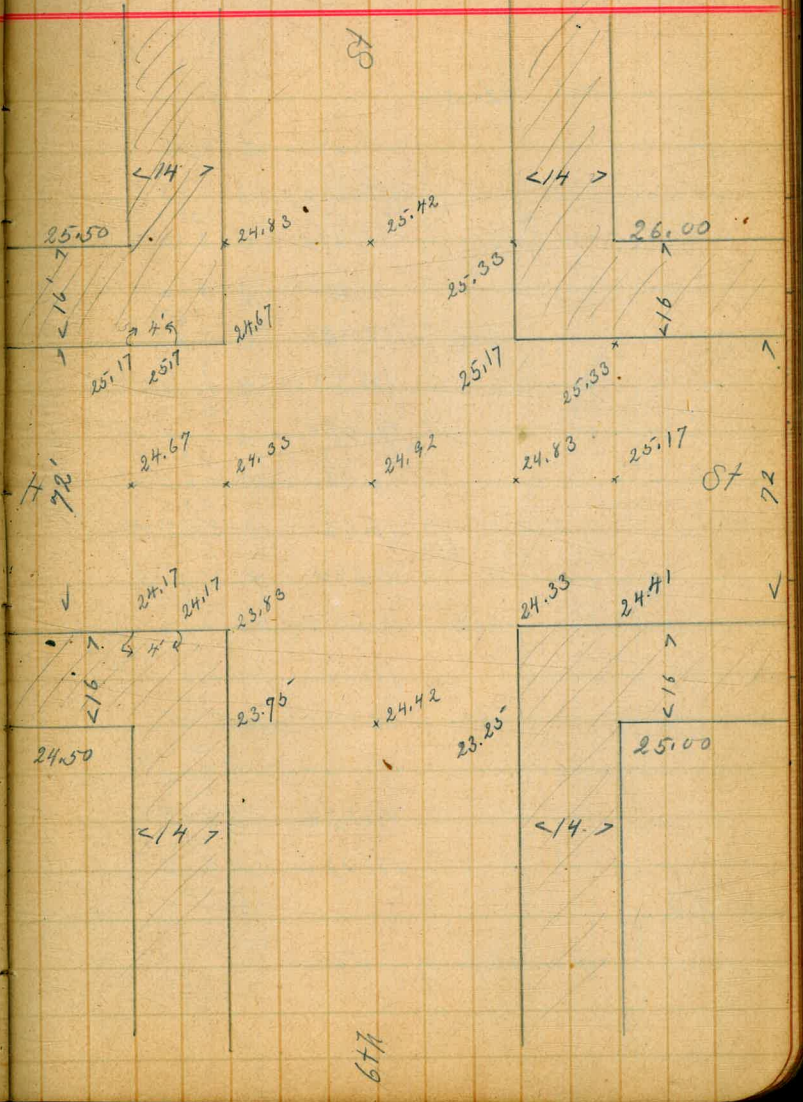 St
<14>
<14>
25.50
24.83
25.42
26.00
<16'>
25.33
<16
4'
24.67
25.17
25.17
25.7
25.33
24.67
24.33
24.92
24.83
25.17
H
72'
St
72
24.17
24.17
23.83
24.33
24.41
4'
<16>
<16>
23.75
24.42
23.25
24.50
25.00
<14>
<14>
6th